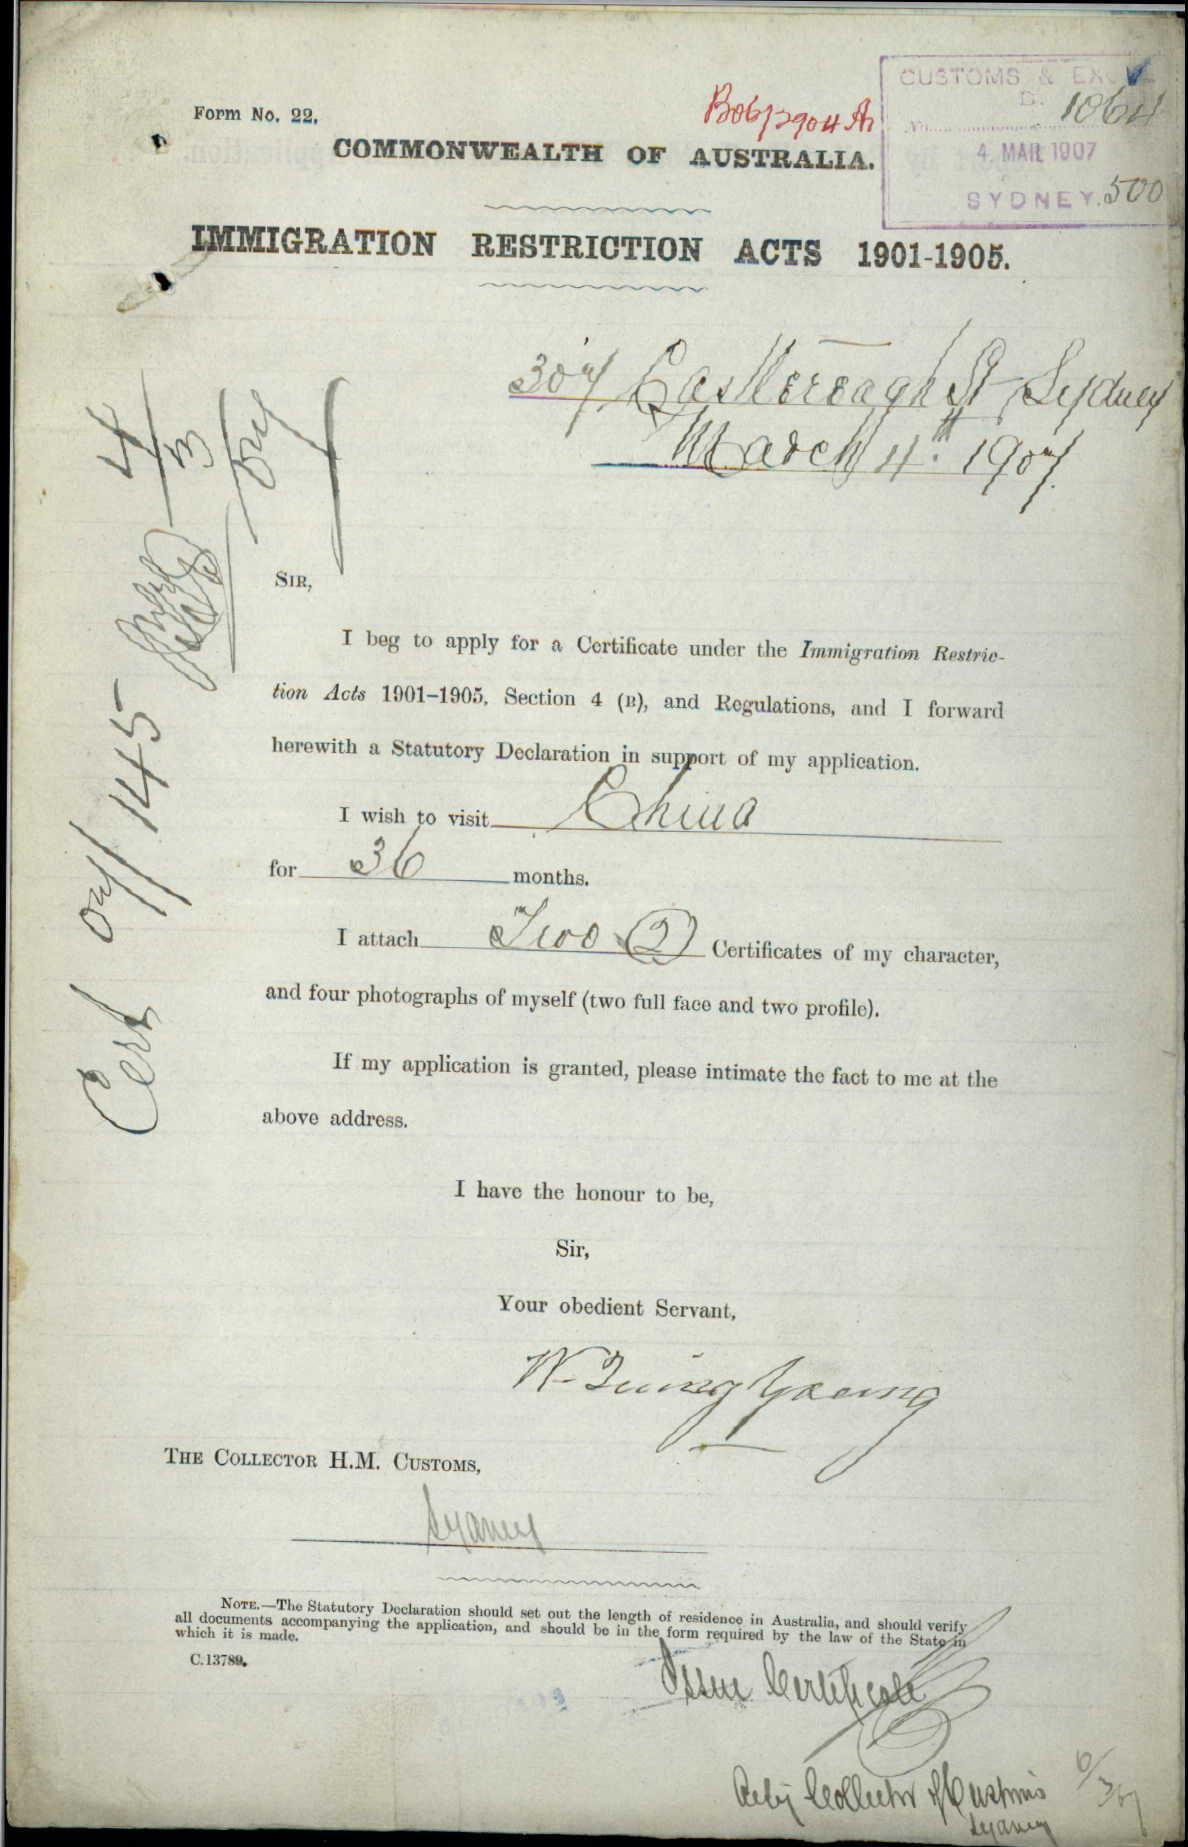 Form No. 22.
CUSTOMS & EXCISE
1064
4 MAR 1907
SYDNEY. 500
COMMONWEALTH OF AUSTRALIA.
IMMIGRATION RESTRICTION ACTS 1901-1905.
307 Castlereagh St, Sydney
March 4th 1907.
4/3/07
Cert 07/145
SIR,
I beg to apply for a Certificate under the Immigration Restric-
tion Acts 1901–1905, Section 4 (B), and Regulations, and I forward
herewith a Statutory Declaration in support of my application.
I wish to visit China
for 36 months.
I attach Two (2) Certificates of my character,
and four photographs of myself (two full face and two profile).
If my application is granted, please intimate the fact to me at the
above address.
I have the honour to be,
Sir,
Your obedient Servant,
W. Young
THE COLLECTOR H.M. CUSTOMS,
Sydney
NOTE.—The Statutory Declaration should set out the length of residence in Australia, and should verify
all documents accompanying the application, and should be in the form required by the law of the State in
which it is made.
C.13789.
Issue Certificate
Collector of Customs
Sydney
6/3/07